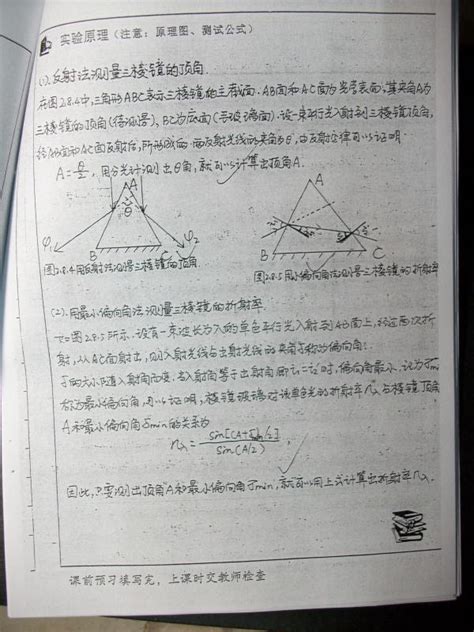 实验原理（注意：原理图、测试公式）
(1).反射法测量三棱镜的顶角.
在图2.8.4中,三角形ABC表示三棱镜的主截面.AB面和AC面为光学表面,其夹角A为
三棱镜的顶角(待测量),BC为底面(毛玻璃面).设一束平行光入射到三棱镜顶角,
经AB面和AC面反射后,所形成的两反射光线的夹角为θ,由反射定律可以证明
A=θ/2,用分光计测出θ角,就可以计算出顶角A.
A
θ
φ1
φ2
B
图2.8.4用反射法测量三棱镜的顶角.
A
B
C
图2.8.5用最小偏向角法测量三棱镜的折射率
(2).用最小偏向角法测量三棱镜的折射率
如图2.8.5所示.设有一束波长为入的单色平行光入射到AB面上,经过两次折
射,从AC面射出,则入射光线与出射光线的夹角δ称为偏向角.
δ的大小随入射角而变.当入射角等于出射角 时,偏向角最小,记为δmin
称为最小偏向角,可以证明,棱镜玻璃对该单色光的折射率nλ与棱镜顶角
A和最小偏向角δmin的关系为
nλ=sin[(A+δmin)/2]/sin(A/2),
因此,只要测出顶角A和最小偏向角δmin,就可以用上式计算出折射率nλ.
课前预习填写完，上课时交教师检查